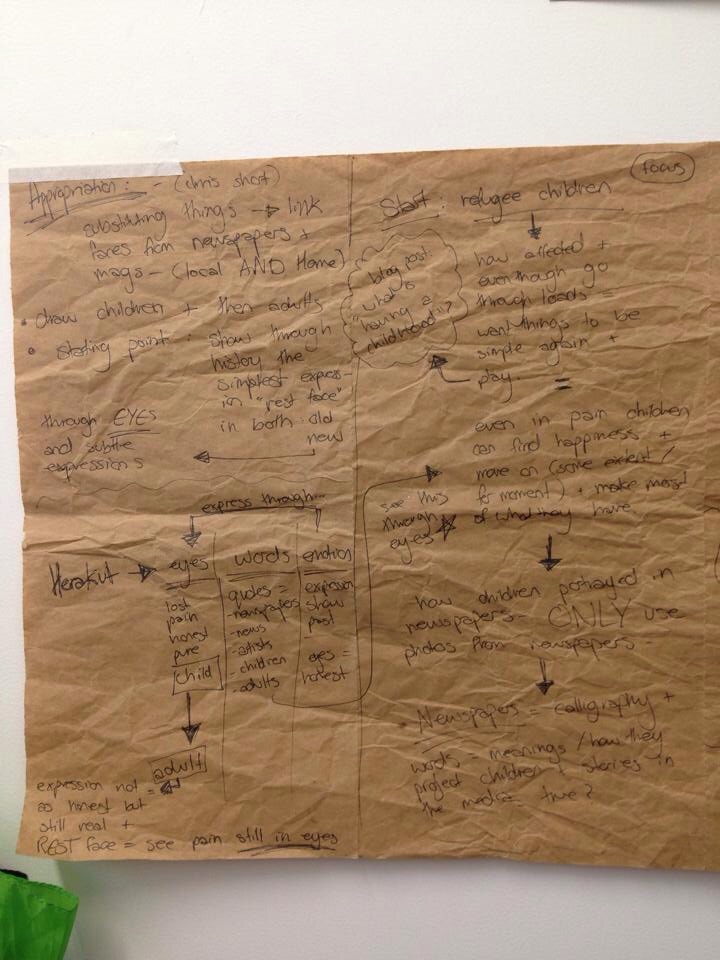 Appropriation: - (chris short)
substituting things → link
faces from newspapers +
mags - (local AND Home)
• draw children + then adults
• starting point: show through
history the
simplest express-
ion "rest face"
in both old
new
through EYES
and subtle
expressions
express through...
Herakut → eyes
lost
pain
honest
pure
child
adult
words
quotes =
-newspapers
-news
-artists
-children
-adults
emotion
expression
show
past
eyes =
honest
expression not =
as honest but
still real +
REST face = see pain still in eyes
focus
Start: refugee children
how affected +
even though go
through loads =
want things to be
simple again +
play. =
blog post:
"what is
having a
childhood"?
even in pain children
can find happiness +
move on (some extent /
for moment) + make most
of what they have.
see this
through
eyes
- how children portrayed in
newspapers - ONLY use
photos from newspapers
• Newspapers = calligraphy +
words = meanings / how they
project children + stories in
the media true?